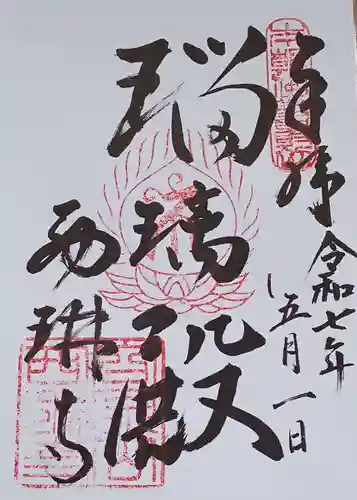 奉拝
令和七年
五月一日
瑠璃殿
西琳寺